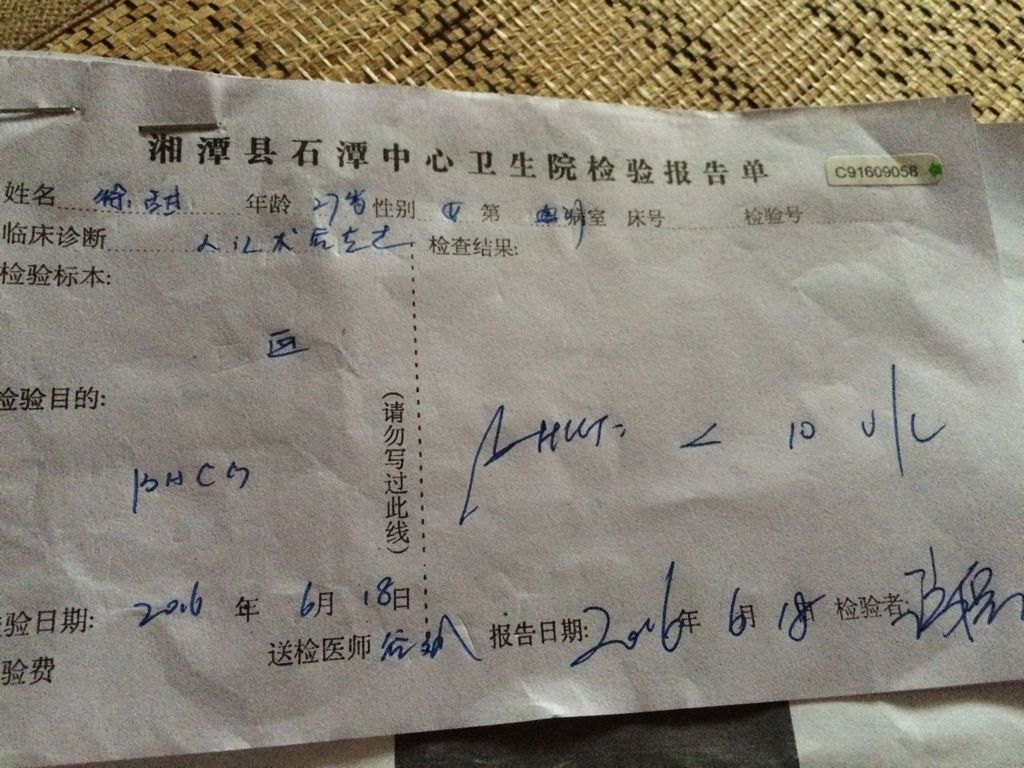 湘潭县石潭中心卫生院检验报告单
C91609058
姓名 徐 年龄 27岁 性别 女 第 病室 床号 检验号
临床诊断 人 术后
检查结果:
检验标本:
血
检验目的:
(请勿写过此线)
βHCG
βHCG: < 10 U/L
验日期: 2016 年 6月 18日
送检医师
报告日期: 2016年 6月 18 检验者:
验费